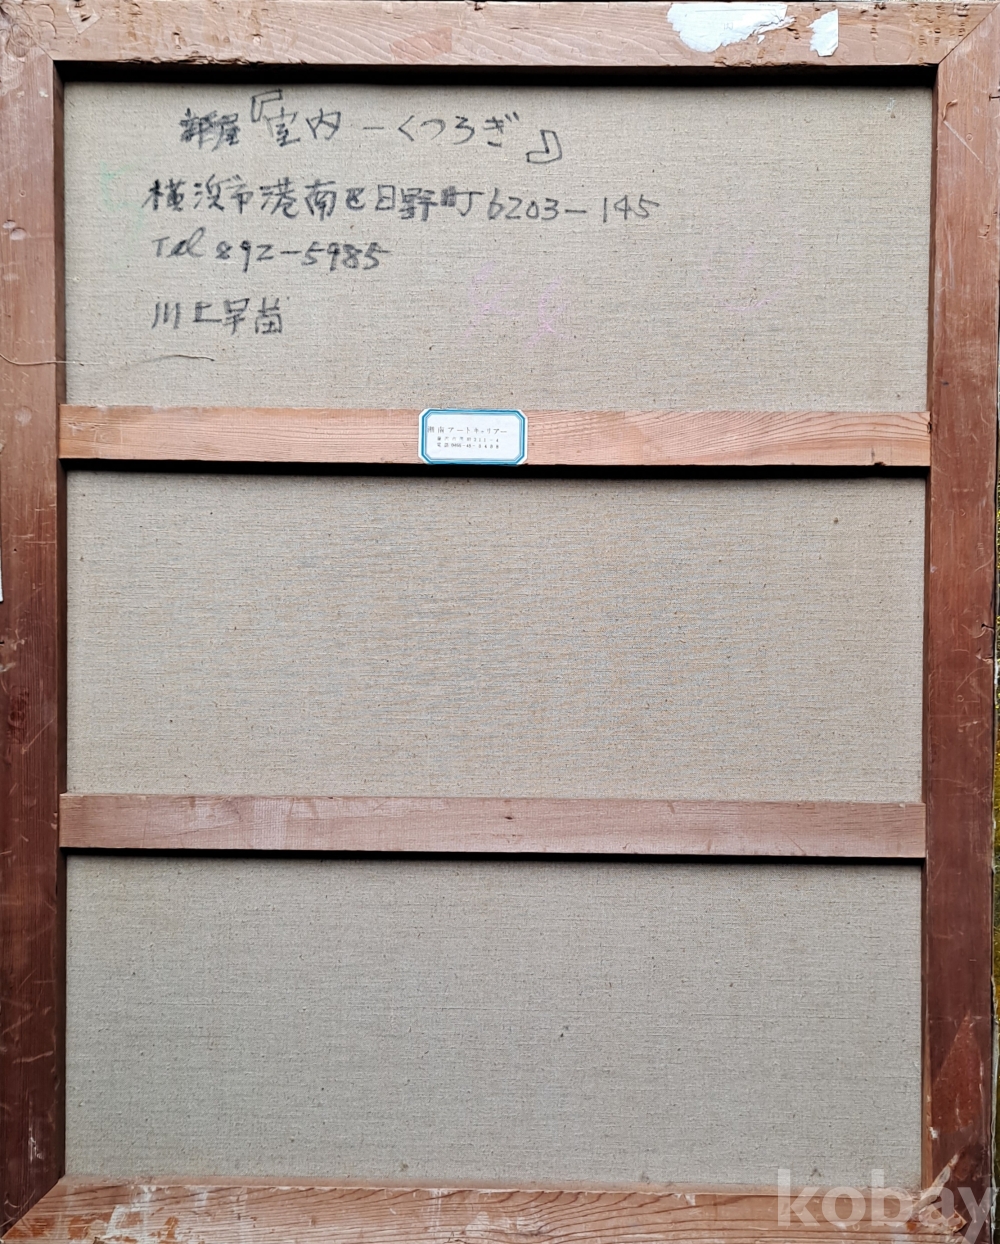 部屋『室内－くつろぎ』
横浜市港南区日野町6203－145
Tel 892－5985
川上早苗
湘南アートキャリアー
kobay